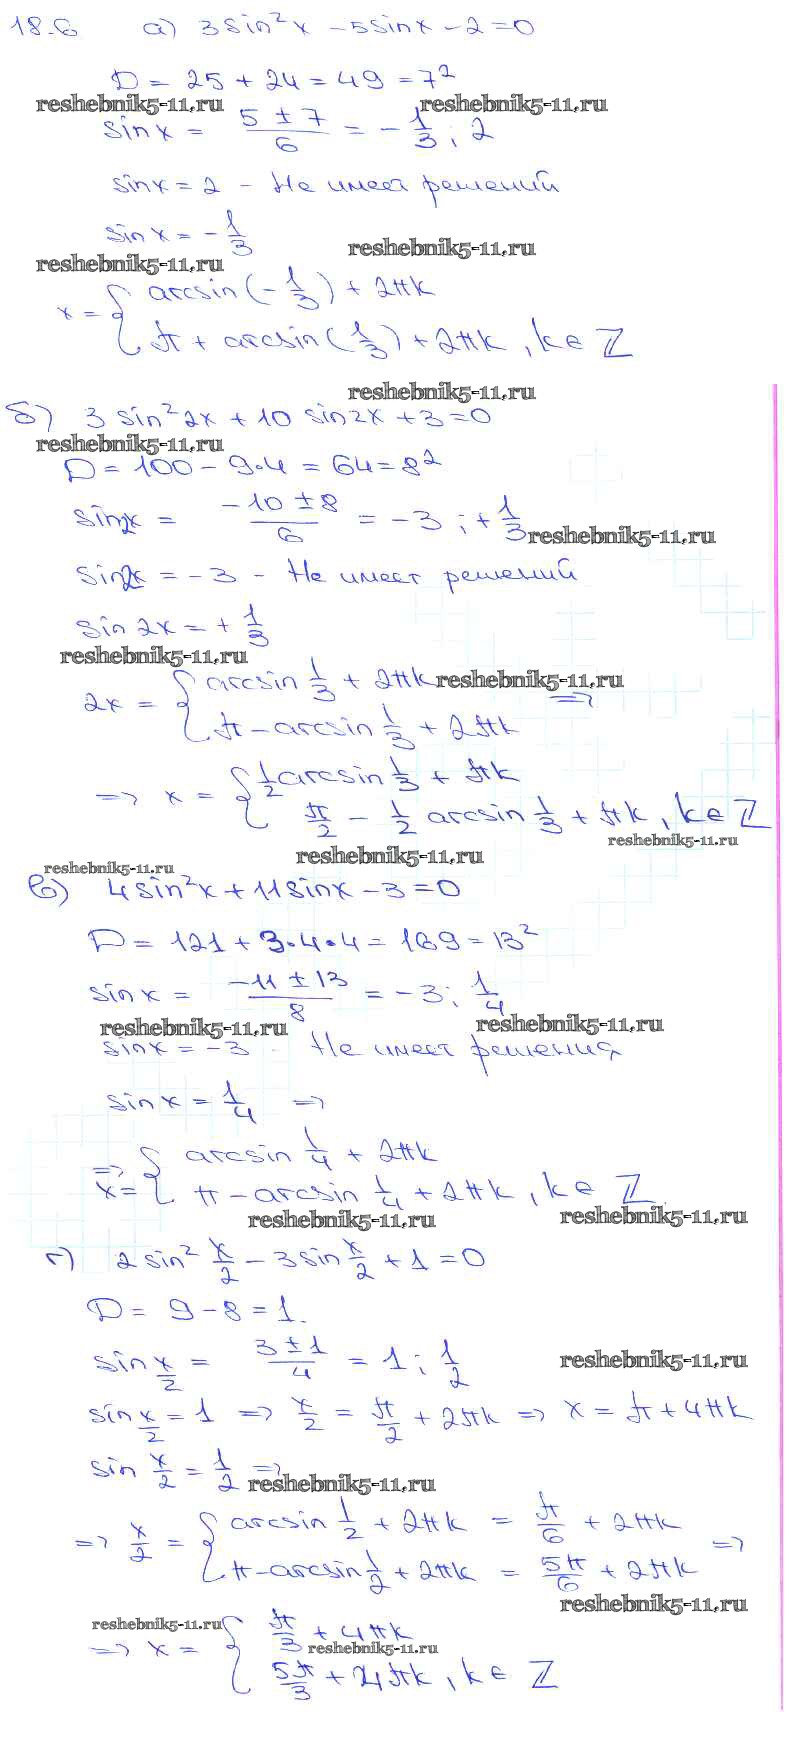 18.6 а) 3sin²x - 5sinx - 2 = 0
D = 25 + 24 = 49 = 7²
reshebnik5-11.ru reshebnik5-11.ru
sinx = (5 ± 7)/6 = -1/3 ; 2
sinx = 2 - Не имеет решений
sinx = -1/3
reshebnik5-11.ru
reshebnik5-11.ru
x = { arcsin(-1/3) + 2πk
π + arcsin(1/3) + 2πk, k ∈ Z
reshebnik5-11.ru
б) 3 sin²2x + 10 sin2x + 3 = 0
reshebnik5-11.ru
D = 100 - 9·4 = 64 = 8²
sin2x = (-10 ± 8)/6 = -3 ; +1/3
reshebnik5-11.ru
sin2x = -3 - Не имеет решений
sin2x = +1/3
reshebnik5-11.ru
2x = { arcsin 1/3 + 2πk
reshebnik5-11.ru
π - arcsin 1/3 + 2πk =>
=> x = { 1/2 arcsin 1/3 + πk
π/2 - 1/2 arcsin 1/3 + πk, k ∈ Z
reshebnik5-11.ru
reshebnik5-11.ru
reshebnik5-11.ru
в) 4sin²x + 11sinx - 3 = 0
D = 121 + 3·4·4 = 169 = 13²
sinx = (-11 ± 13)/8 = -3 ; 1/4
reshebnik5-11.ru reshebnik5-11.ru
sinx = -3 - Не имеет решения
sinx = 1/4 =>
=> x = { arcsin 1/4 + 2πk
π - arcsin 1/4 + 2πk, k ∈ Z
reshebnik5-11.ru reshebnik5-11.ru
г) 2sin² x/2 - 3sin x/2 + 1 = 0
D = 9 - 8 = 1.
sin x/2 = (3 ± 1)/4 = 1 ; 1/2
reshebnik5-11.ru
sin x/2 = 1 => x/2 = π/2 + 2πk => x = π + 4πk
sin x/2 = 1/2 =>
reshebnik5-11.ru
=> x/2 = { arcsin 1/2 + 2πk = π/6 + 2πk
π - arcsin 1/2 + 2πk = 5π/6 + 2πk =>
reshebnik5-11.ru
reshebnik5-11.ru
=> x = { π/3 + 4πk
reshebnik5-11.ru
5π/3 + 4πk, k ∈ Z